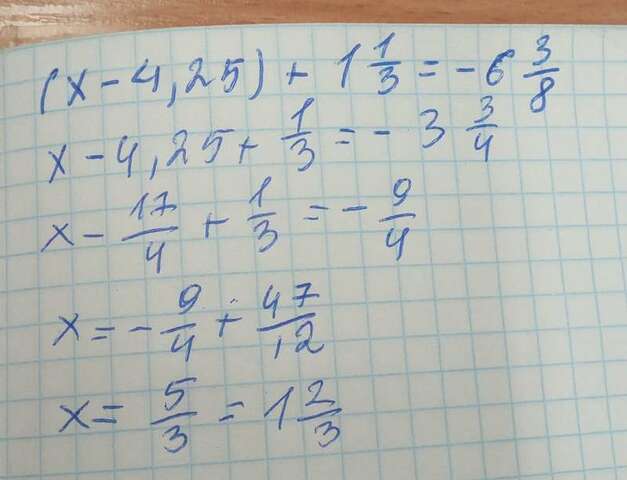 (x - 4,25) + 1 1/3 = - 6 3/8
x - 4,25 + 1/3 = - 3 3/4
x - 17/4 + 1/3 = - 9/4
x = - 9/4 + 47/12
x = 5/3 = 1 2/3